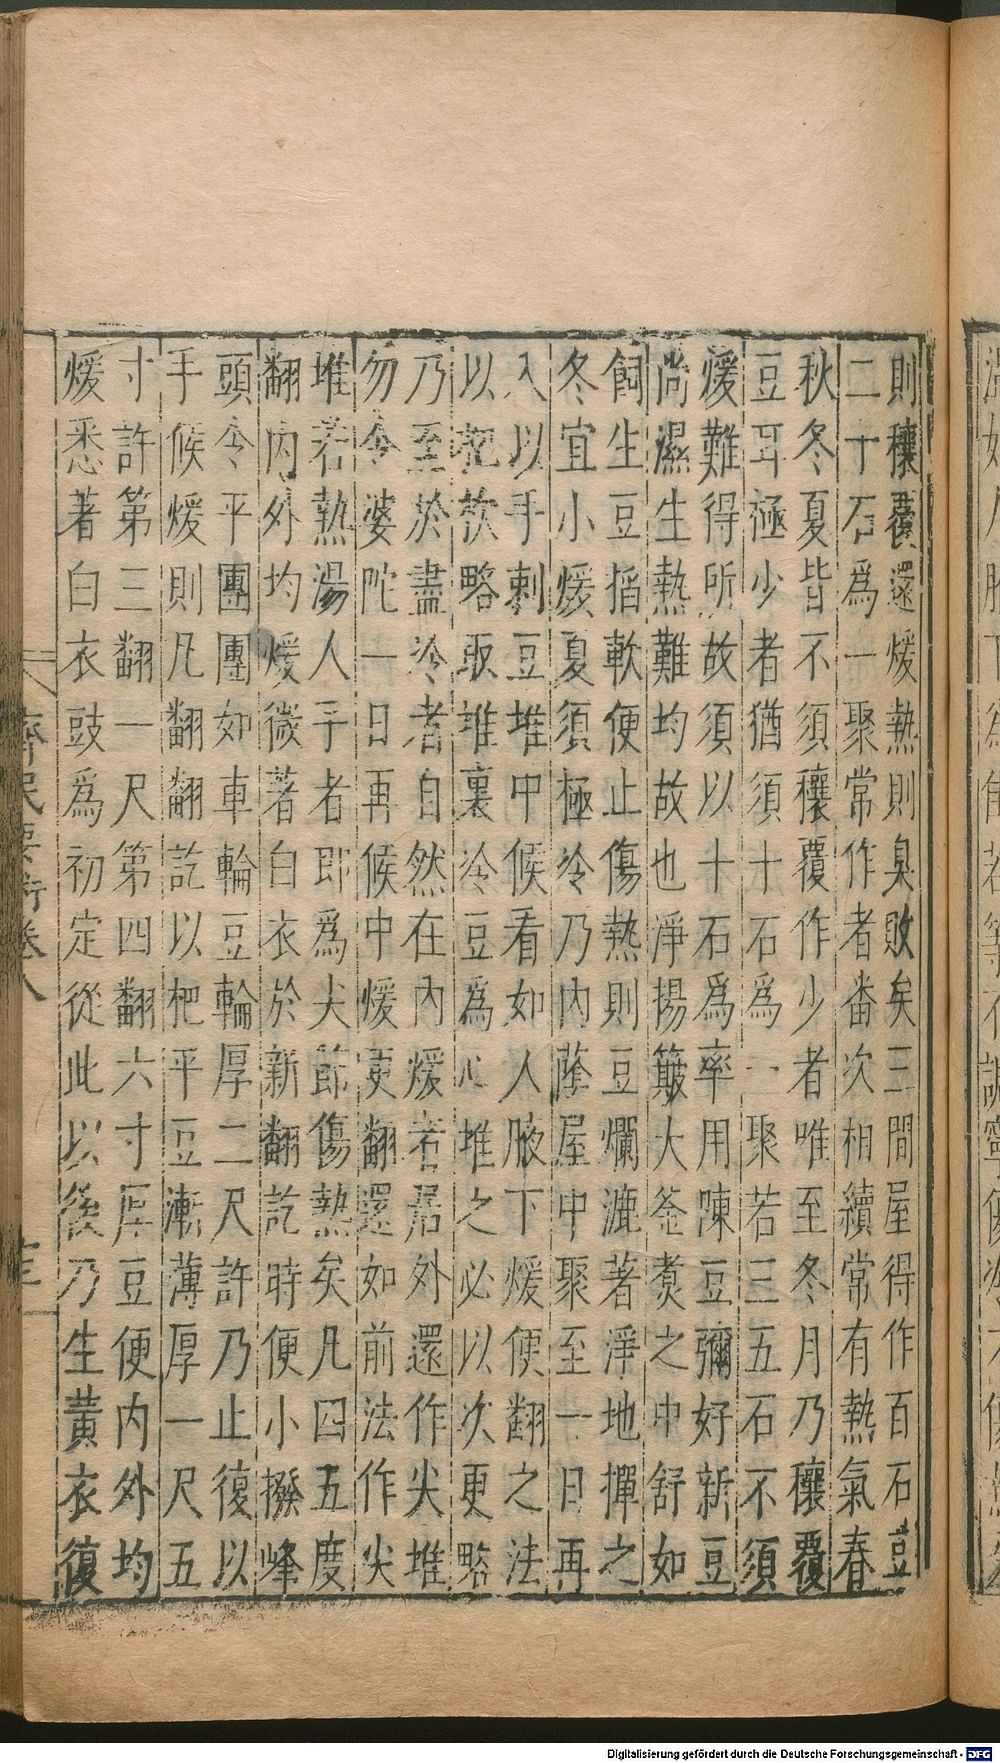 則穰覆還煖熱則臭敗矣三間屋得作百石豆
二十石爲一聚常作者番次相續常有熱氣春
秋冬夏皆不須穰覆作少者唯至冬月乃穰覆
豆耳極少者猶須十石爲一聚若三五石不須
煖難得所故須以十石爲率用陳豆彌好新豆
尚濕生熱難均故也淨揚簸大釜煑之申舒如
飼生豆掐軟便止傷熱則豆爛漉著淨地撣之
冬宜小煖夏須極冷乃内蔭屋中聚至一日再
入以手刺豆堆中候看如人腋下煖便翻之法
以杷杴略取堆裏冷豆爲心堆之必以次更略
乃至於盡冷者自然在内煖者居外還作尖堆
勿令婆陀一日再候中煖更翻還如前法作尖
堆若熱湯人手者即爲尖節傷熱矣凡四五度
翻内外均煖微著白衣於新翻訖時便小撥峰
頭令平團團如車輪豆輪厚二尺許乃止復以
手候煖則凡翻翻訖以杷平豆漸薄厚一尺五
寸許第三翻一尺第四翻六寸厚豆便内外均
煖悉著白衣豉爲初定從此以後乃生黃衣復
齊民要術卷八
Digitalisierung gefördert durch die Deutsche Forschungsgemeinschaft - DFG